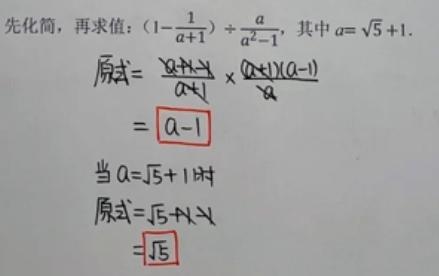 先化简，再求值：(1-\frac{1}{a+1})÷\frac{a}{a²-1}，其中 a=√5+1.
原式=\frac{a+1-1}{a+1}×\frac{(a+1)(a-1)}{a}
=a-1
当a=√5+1时
原式=√5+1-1
=√5